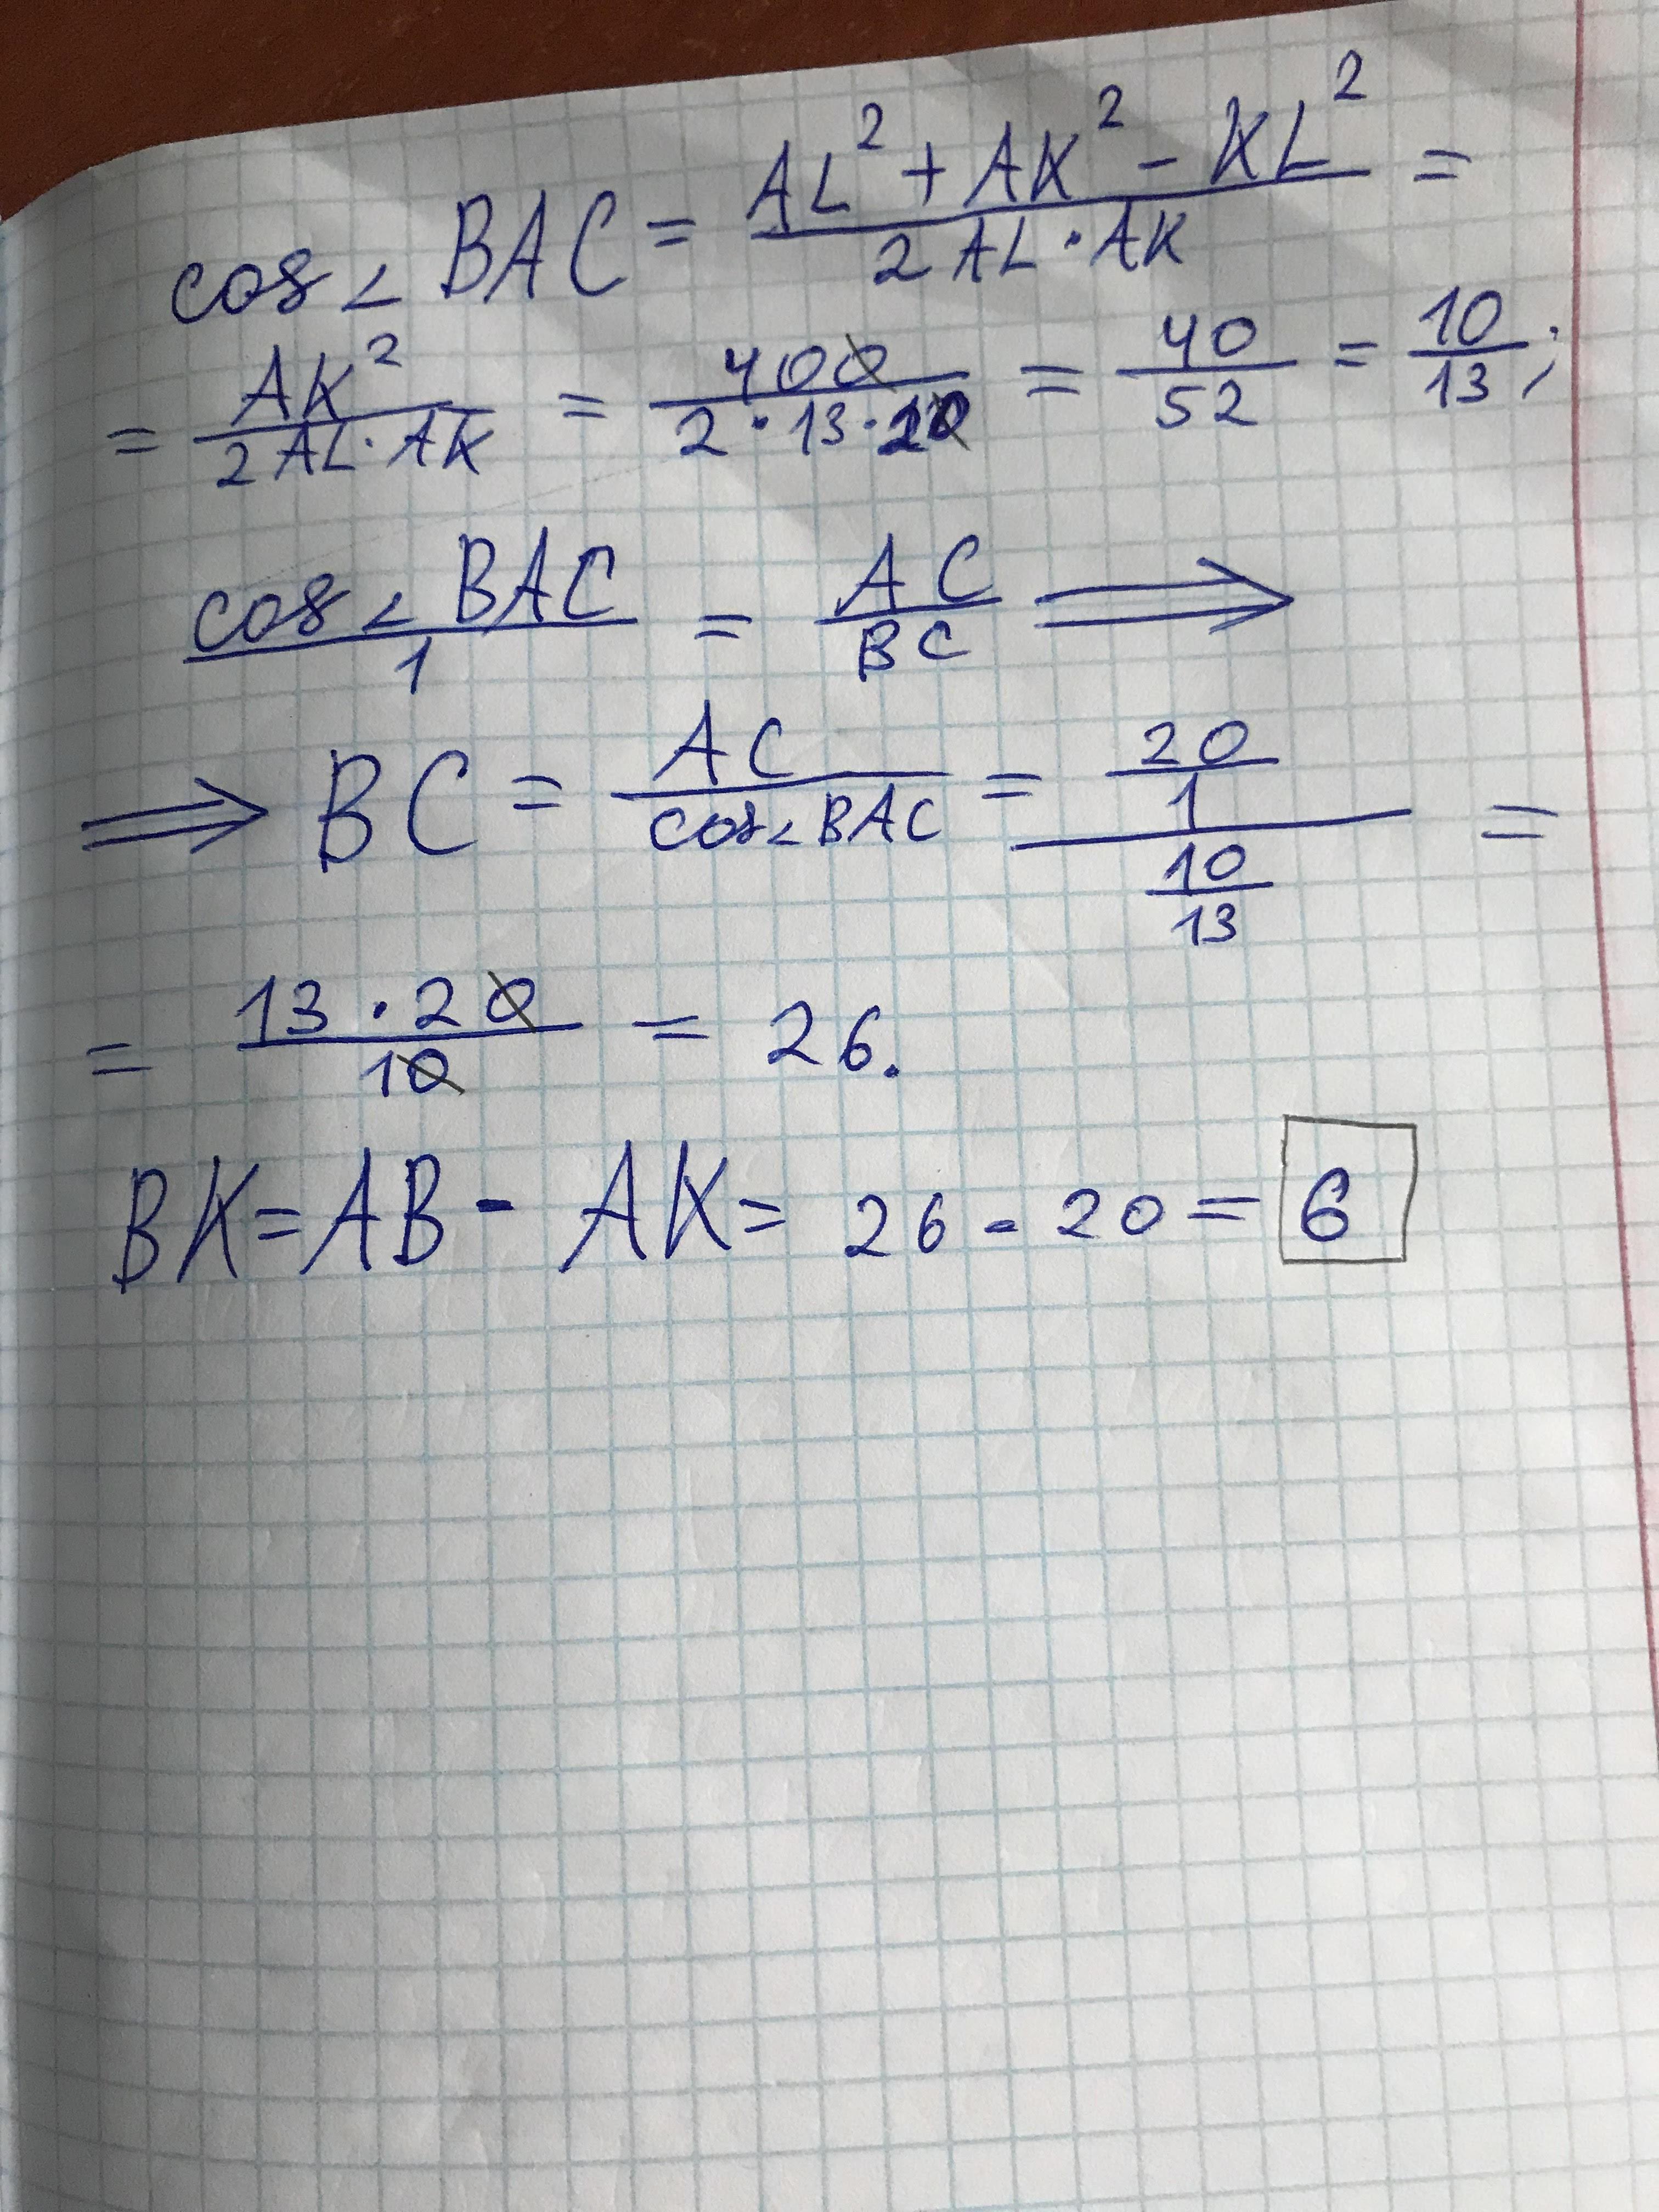 cos∠BAC = (AL² + AK² - KL²)/(2AL·AK) =
= AK²/(2AL·AK) = 400/(2·13·20) = 40/52 = 10/13;
cos∠BAC/1 = AC/BC ⟹
⟹ BC = AC/cos∠BAC = (20/1)/(10/13) =
= (13·20)/10 = 26.
BK = AB - AK = 26 - 20 = 6